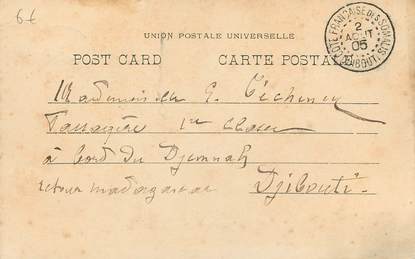 6€
UNION POSTALE UNIVERSELLE
POST CARD CARTE POSTALE
CÔTE FRANÇAISE DES SOMALIS
2
AOUT
05
DJIBOUTI
Mademoiselle G.
Passagère 1re classe
à bord du Djemnah
retour madagascar Djibouti